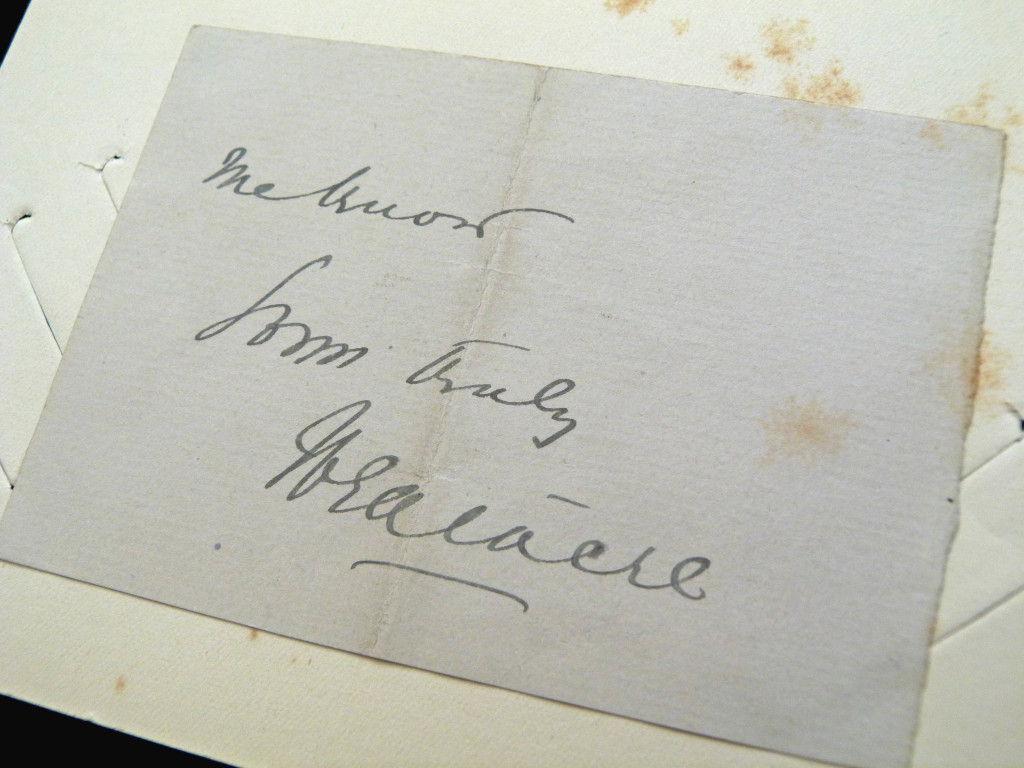 me know
Yours truly
WGatacre